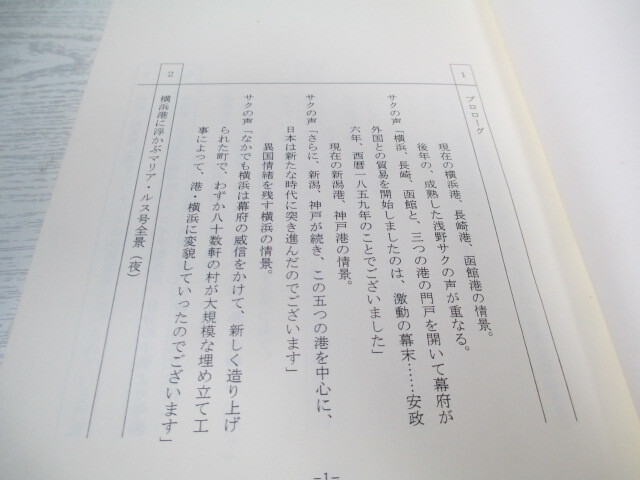 1
プロローグ
現在の横浜港、長崎港、函館港の情景。
後年の、成熟した浅野サクの声が重なる。
サクの声「横浜、長崎、函館と、三つの港の門戸を開いて幕府が
外国との貿易を開始しましたのは、激動の幕末……安政
六年、西暦一八五九年のことでございました」
現在の新潟港、神戸港の情景。
サクの声「さらに、新潟、神戸が続き、この五つの港を中心に、
日本は新たな時代に突き進んだのでございます」
異国情緒を残す横浜の情景。
サクの声「なかでも横浜は幕府の威信をかけて、新しく造り上げ
られた町で、わずか八十数軒の村が大規模な埋め立て工
事によって、港・横浜に変貌していったのでございます」
2
横浜港に浮かぶマリア・ルス号全景（夜）
—1—